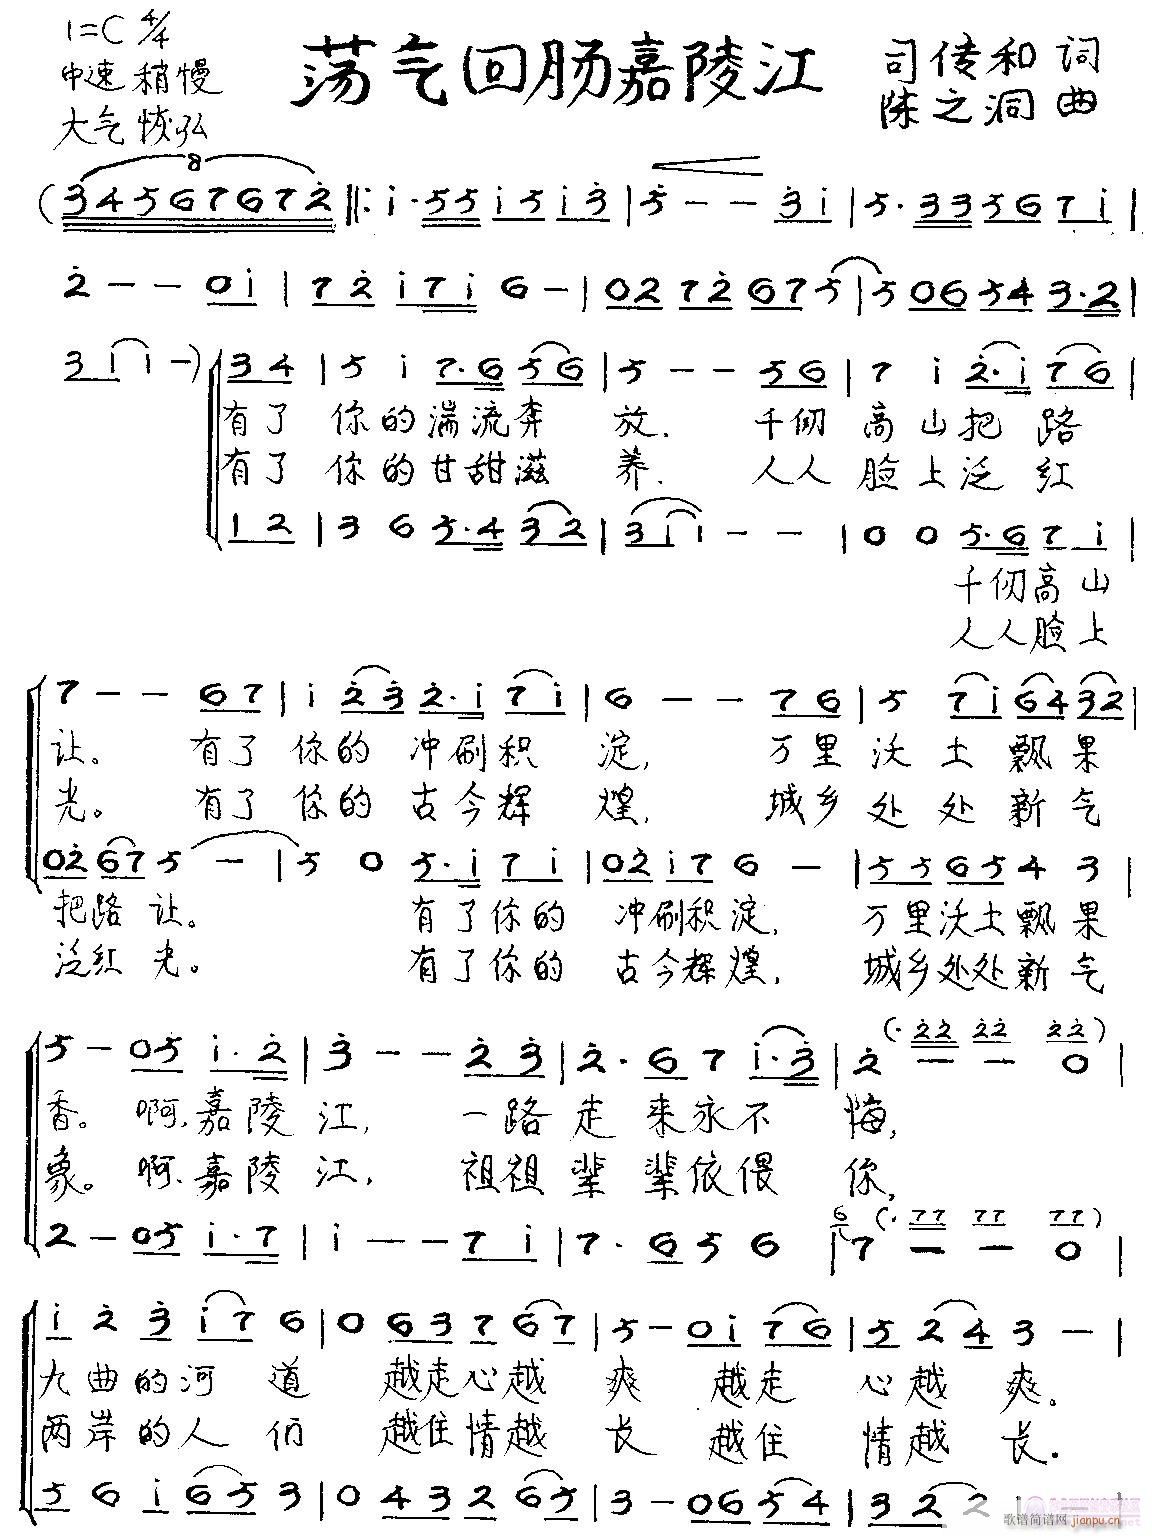 1=C 4/4
中速 稍慢
大气 恢弘
荡气回肠嘉陵江
司传和 词
陈之洞 曲
(3 4 5 6 7 6 7 2̇ ‖: i · 5 5 i 5 i 3̇ | 5̇ - - 3̇ i | 5 · 3 3 5 6 7 i |
2̇ - - 0 i | 7 2̇ i 7 i 6 - | 0 2 7 2̇ 6 7 5 | 5 0 6 5 4 3 · 2 |
3 i i -) 3 4 | 5 i 7 · 6 5 6 | 5 - - 5 6 | 7 i 2̇ · i 7 6 |
有了 你的湍流奔 放, 千仞 高山把 路
有了 你的甘甜滋 养, 人人 脸上泛 红
1 2 | 3 6 5 · 4 3 2 | 3 i i - - | 0 0 5 · 6 7 i |
千仞高山
人人脸上
7 - - 6 7 | i 2̇ 3̇ 2̇ · i 7 i | 6 - - 7 6 | 5 7 i 6 4 3 2 |
让。 有了 你的 冲刷积 淀, 万里 沃土飘果
光。 有了 你的 古今辉 煌, 城乡 处处新气
0 2̇ 6 7 5 - | 5 0 5 · i 7 i | 0 2̇ i 7 6 - | 5 5 6 5 4 3 |
把路 让。 有了你的 冲刷积淀, 万里沃土飘果
泛红 光。 有了你的 古今辉煌, 城乡处处新气
(· 2̇2̇ 2̇2̇ 2̇2̇)
5 - 0 5 i · 2̇ | 3̇ - - 2̇ 3̇ | 2̇ · 6 7 i · 3̇ | 2̇ - - 0 |
香。 啊,嘉陵 江, 一路 走 来永不 悔,
象。 啊,嘉陵 江, 祖祖 辈 辈依偎 你,
6 (· 77 77 77)
2 - 0 5 i · 7 | i - - 7 i | 7 · 6 5 6 | 7 - - 0 |
i 2̇ 3̇ i 7 6 | 0 6 3 7 6 7 | 5 - 0 i 7 6 | 5 2 4 3 - |
九曲的河 道 越走心越 爽 越走 心越 爽。
两岸的人 们 越住情越 长 越住 情越 长.
5 6 i 6 5 3 | 0 4 3 2 6 5 | 3 - 0 6 5 4 | 3 2 2 -
歌谱简谱网 jianpu.cn